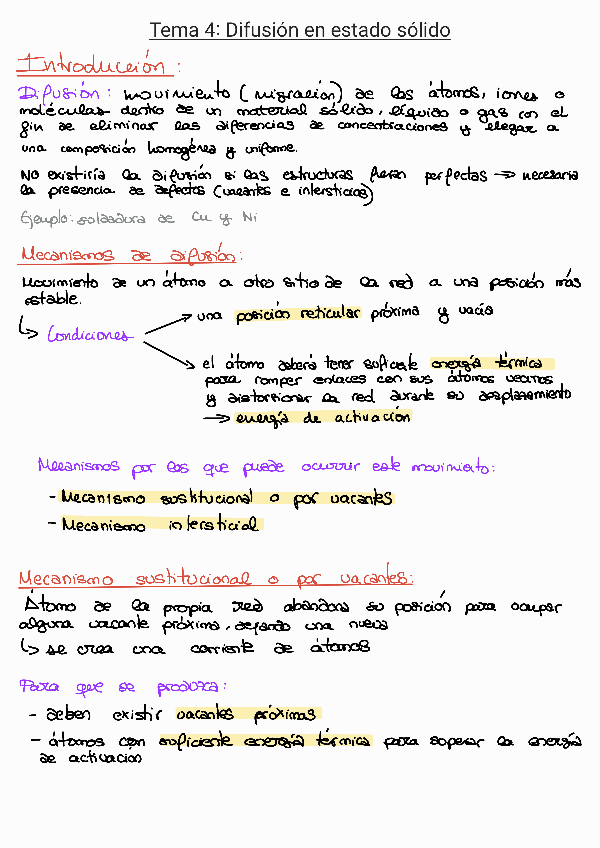 Tema 4: Difusión en estado sólido
Introducción:
Difusión: movimiento (migración) de los átomos, iones o
moléculas dentro de un material sólido, líquido o gas con el
fin de eliminar las diferencias de concentraciones y llegar a
una composición homogénea y uniforme.
No existiría la difusión si las estructuras fueran perfectas → necesaria
la presencia de defectos (vacantes e intersticios)
Ejemplo: soldadura de Cu y Ni
Mecanismos de difusión:
Movimiento de un átomo a otro sitio de la red a una posición más
estable.
↳ Condiciones
→ una posición reticular próxima y vacía
→ el átomo deberá tener suficiente energía térmica
para romper enlaces con sus átomos vecinos
y distorsionar la red durante su desplazamiento
→ energía de activación
Mecanismos por los que puede ocurrir este movimiento:
- Mecanismo sustitucional o por vacantes
- Mecanismo intersticial
Mecanismo sustitucional o por vacantes:
Átomo de la propia red abandona su posición para ocupar
alguna vacante próxima, dejando una nueva
↳ se crea una corriente de átomos
Para que se produzca:
- deben existir vacantes próximas
- átomos con suficiente energía térmica para superar la energía
de activación